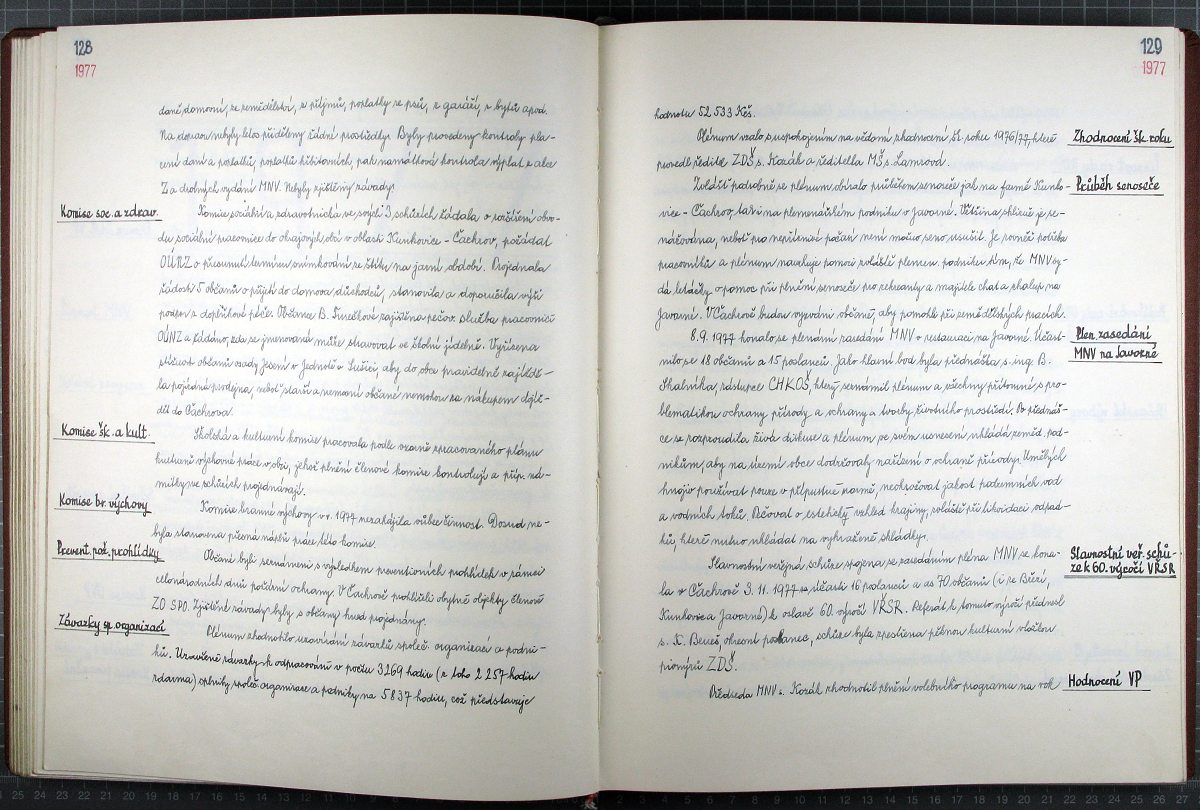 128
1977
daně domovní, ze zemědělství, z příjmů, poplatky ze psů, z garáží, z bytů apod.
Na dopravu nebyly letos přiděleny žádné prostředky. Byly provedeny kontroly pla-
cení daní a poplatků, poplatků hřbitovních, pak namátková kontrola výplat z akce
Z a drobných vydání MNV. Nebyly zjištěny závady.
Komise soc. a zdrav.
Komise sociální a zdravotnická ve svých 3 schůzích žádala o rozšíření obvo-
du sociální pracovnice do okrajových obcí v oblasti Kunkovice - Čachrov, požádat
OÚNZ o přesunutí termínu snímkování ze štítu na jarní období. Projednala
žádosti 5 občanů o přijetí do domova důchodců, stanovila a doporučila výši
podpor z doplňkové péče. Občance B. zajištěna pečov. služba pracovnicí
OÚNZ a žádáno, zda se jmenovaná může stravovat ve školní jídelně. Vyřízena
stížnost občanů osady Jesení v Jednotě v Sušici, aby do obce pravidelně zajíždě-
la pojízdná prodejna, neboť staří a nemocní občané nemohou za nákupem dojíž-
dět do Čachrova.
Komise šk. a kult.
Školská a kulturní komise pracovala podle vzorně zpracovaného plánu
kulturně výchovné práce v obci, jehož plnění členové komise kontrolují a příp. ná-
mitky ve schůzích projednávají.
Komise br. výchovy
Komise branné výchovy v r. 1977 nezahájila vůbec činnost. Dosud ne-
byla stanovena přesná náplň práce této komise.
Prevent. pož. prohlídky
Občané byli seznámeni s výsledkem preventivních prohlídek v rámci
celonárodních dnů požární ochrany. V Čachrově prohlíželi obytné objekty členové
ZO SPO. Zjištěné závady byly s občany hned projednány.
Závazky sp. organizací
Plénum zhodnotilo uzavírání závazků společ. organizací a podni-
ků. Uzavřené závazky k odpracování v počtu 3269 hodin (z toho 2 257 hodin
zdarma) splnily společ. organizace a podniky na 5 837 hodin, což představuje
129
1977
hodnotu 52 533 Kčs.
Zhodnocení šk. roku
Plénum vzalo s uspokojením na vědomí zhodnocení šk. roku 1976/77, které
provedl ředitel ZDŠ s. Kozák a ředitelka MŠ s. Lamrová.
Průběh senoseče
Zvlášť podrobně se plénum obíralo průběhem senoseče jak na farmě Kunko-
vice - Čachrov, tak i na plemenářském podniku v Javorné. Většina sklizně je se-
nážována, neboť pro nepříznivé počasí není možno seno usušit. Je rovněž potřeba
pracovníků a plénum navrhuje pomoci zvláště plemen. podniku tím, že MNV vy-
dá letáčky o pomoc při plnění senoseče pro rekreanty a majitele chat a chalup na
Javorné. V Čachrově budou vyzváni občané, aby pomohli při zemědělských pracích.
Plen. zasedání
MNV na Javorné
8. 9. 1977 konalo se plenární zasedání MNV v restauraci na Javorné. Účast-
nilo se 18 občanů a 15 poslanců. Jako hlavní bod byla přednáška s. ing. B.
Skalníka, zástupce CHKOŠ, který seznámil plénum a všechny přítomné s pro-
blematikou ochrany přírody a ochrany a tvorby životního prostředí. Po přednáš-
ce se rozproudila živá diskuse a plénum ve svém usnesení ukládá zeměd. pod-
nikům, aby na území obce dodržovaly nařízení o ochraně přírody. Umělých
hnojiv používat pouze v přípustné normě, neohrožovat jakost podzemních vod
a vodních toků. Pečovat o estetický vzhled krajiny, zvláště při likvidaci odpad-
ků, které nutno ukládat na vyhrazené skládky.
Slavnostní veř. schů-
ze k 60. výročí VŘSR
Slavnostní veřejná schůze spojená se zasedáním pléna MNV se kona-
la v Čachrově 3. 11. 1977 za účasti 16 poslanců a as 70 občanů (i ze Březí,
Kunkovic a Javorné) k oslavě 60. výročí VŘSR. Referát k tomuto výročí přednesl
s. K. Beneš, okresní poslanec, schůze byla zpestřena pěknou kulturní vložkou
pionýrů ZDŠ.
Hodnocení VP
Předseda MNV s. Kozák zhodnotil plnění volebního programu na rok